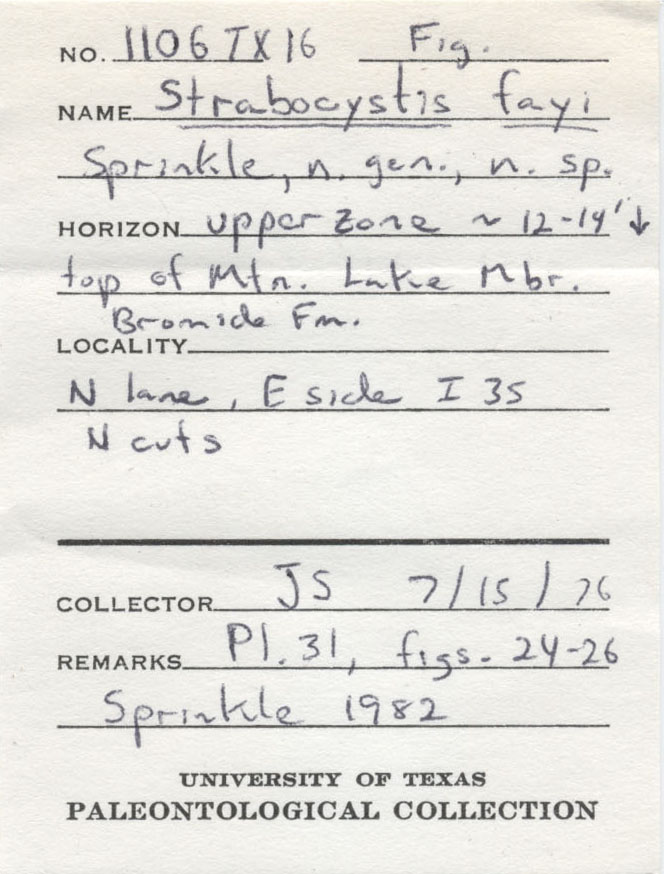 NO. 1106TX16 Fig.
NAME Strabocystis fayi
Sprinkle, n. gen., n. sp.
HORIZON upper zone ~ 12-14' ↓
top of Mtn. Lake Mbr.
Bromide Fm.
LOCALITY
N lane, E side I 35
N cuts
COLLECTOR JS 7/15/76
REMARKS Pl. 31, figs. 24-26
Sprinkle 1982
UNIVERSITY OF TEXAS
PALEONTOLOGICAL COLLECTION